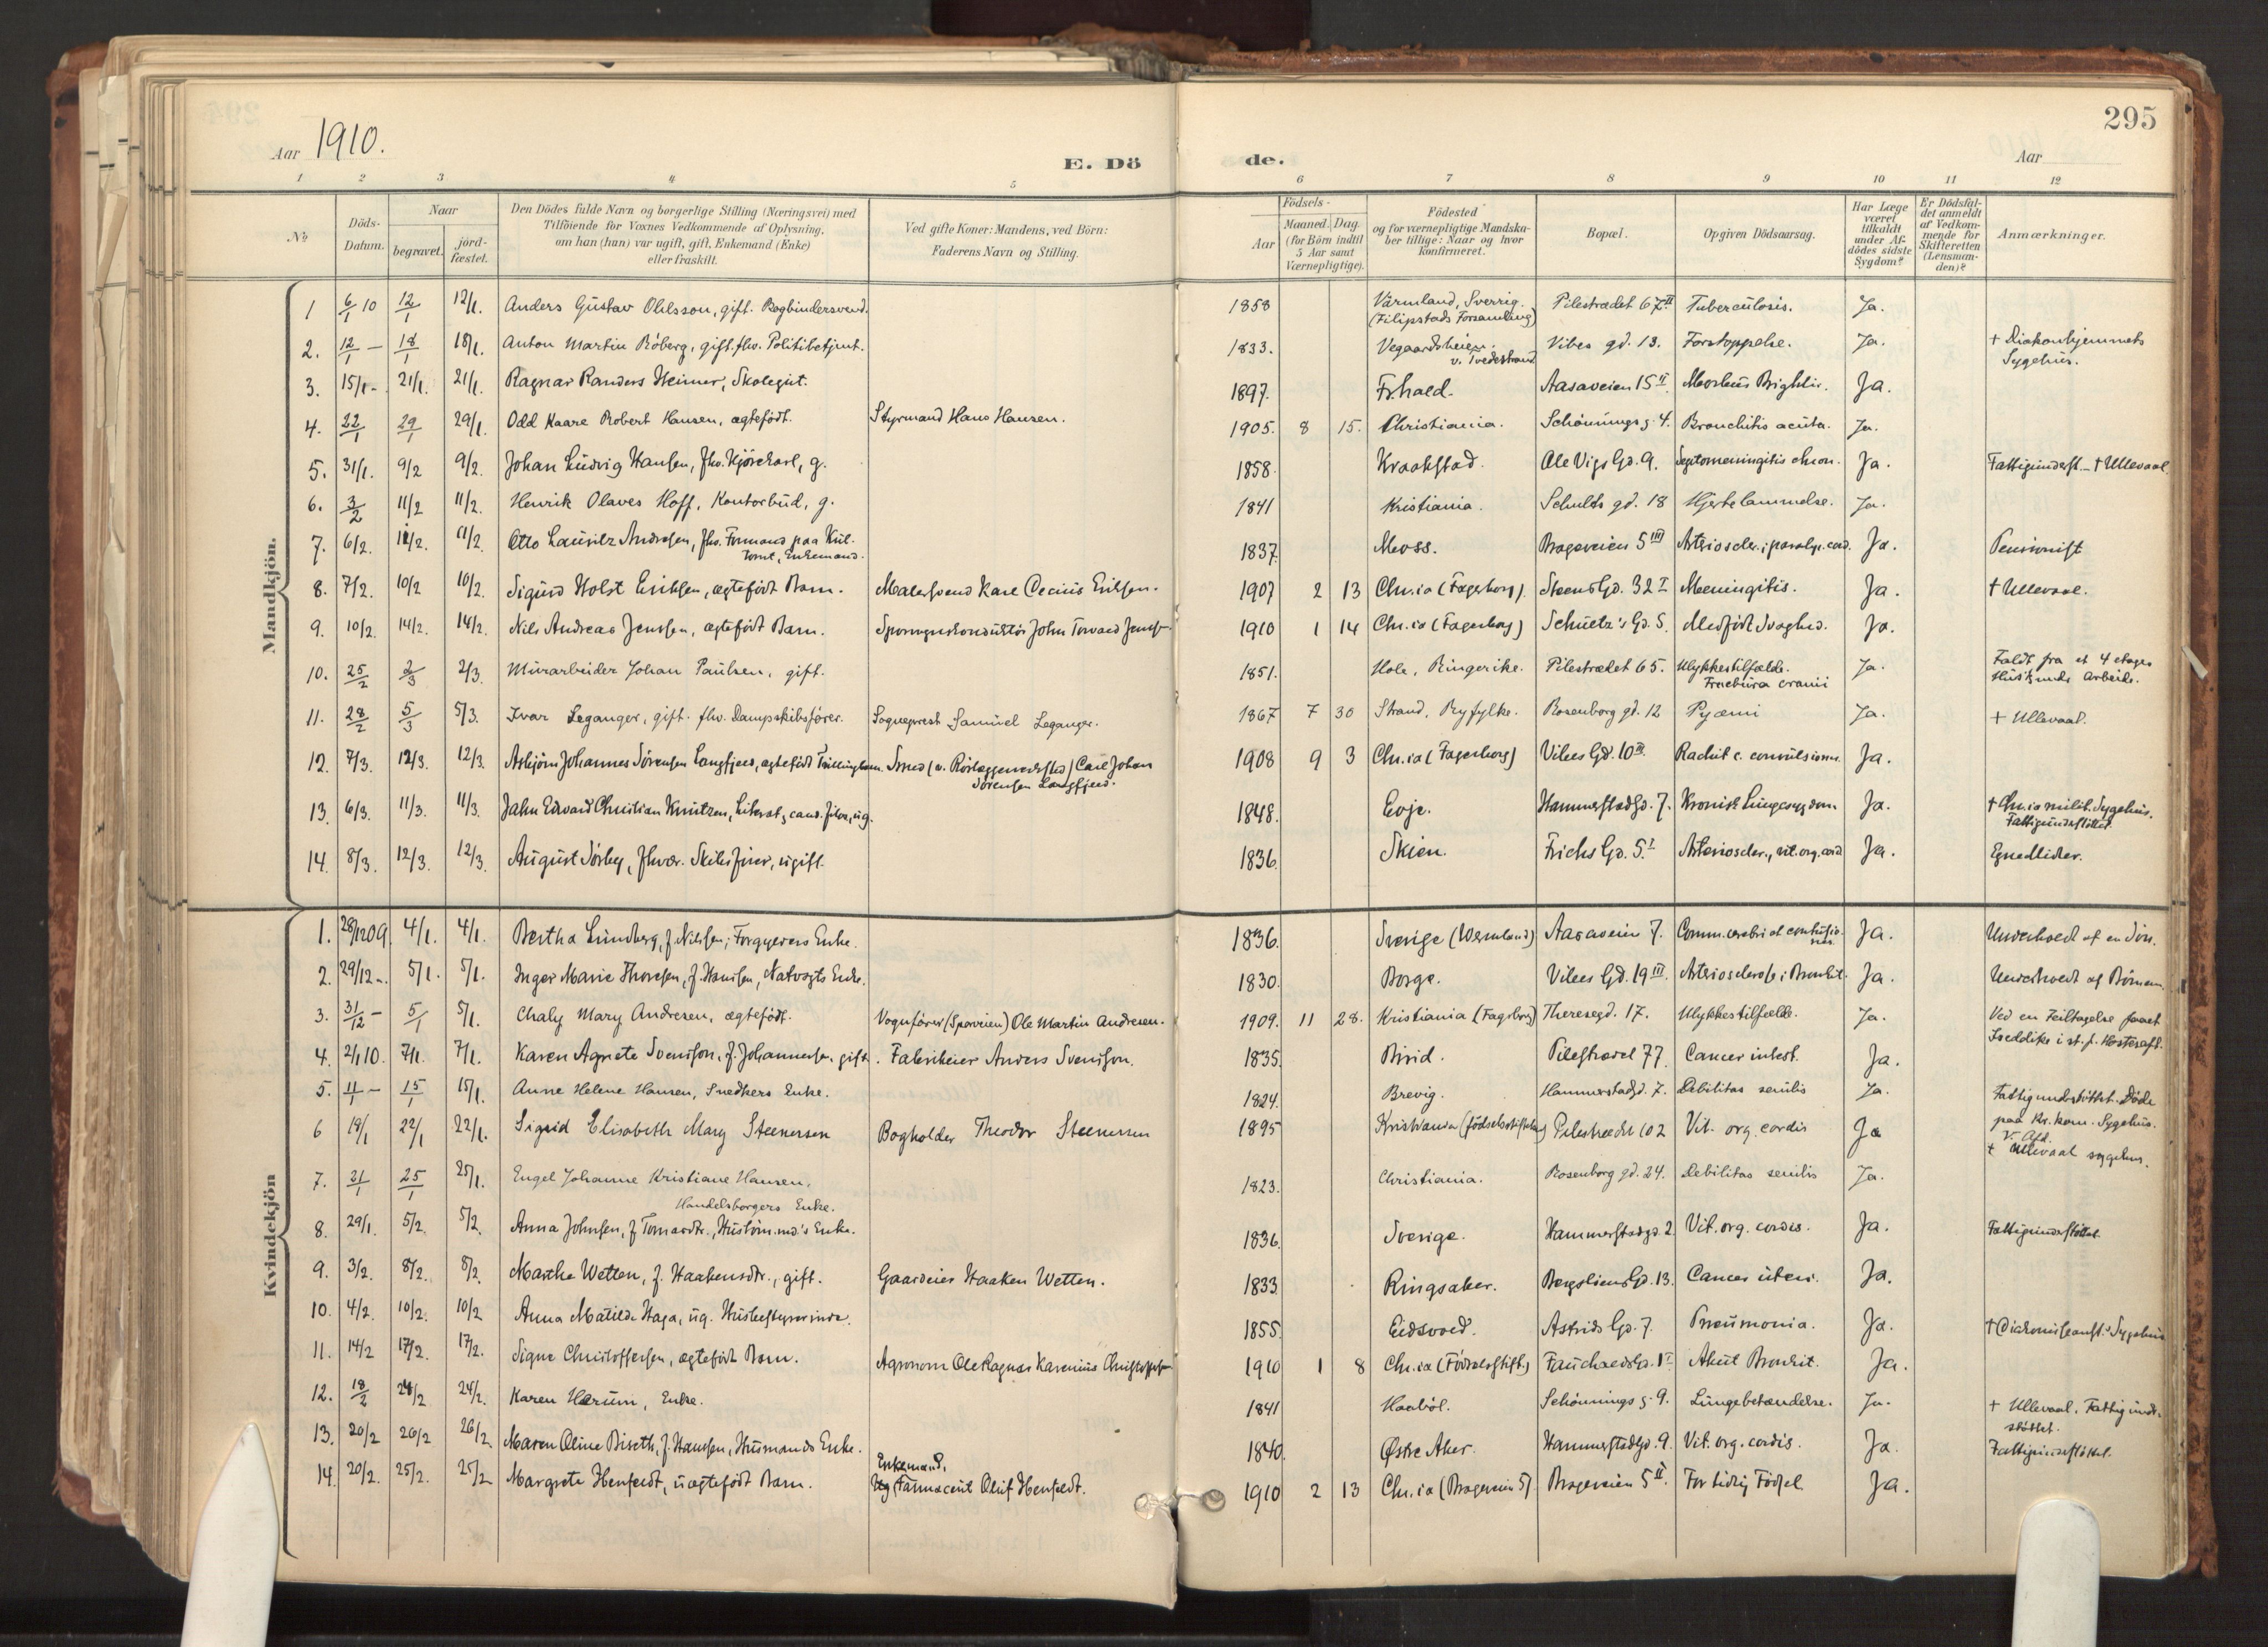 295
Aar 1910.
E. Dö de.
Aar
1 2 3 4 5 6 7 8 9 10 11 12
№
Döds-Datum.
Naar
begravet.
jord-fæstet.
Den Dödes fulde Navn og borgerlige Stilling (Næringsvei) med
Tilföiende for Voxnes Vedkommende af Oplysning,
om han (han) var ugift, gift, Enkemand (Enke)
eller fraskilt.
Ved gifte Koner: Mandens, ved Börn:
Faderens Navn og Stilling.
Födsels-
Aar
Maaned. Dag.
(for Börn indtil
5 Aar samt
Værnepligtige).
Födested
og for værnepligtige Mandska-
ber tillige: Naar og hvor
Konfirmeret.
Bopæl.
Opgiven Dödsaarsag.
Har Læge
været
tilkaldt
under Af-
dödes sidste
Sygdom?
Er Dödsfal-
det anmeldt
af Vedkom-
mende for
Skifteretten
(Lensman-
den)?
Anmærkninger.
Mandkjön.
1 6/1 10 12/1 12/1. Anders Gustav Ohlsson, gift. Bogbindersvend. 1858 Värmland, Sverrig. (Filipstads Forsamling) Pilestrædet 67 II Tuberculosis. Ja.
2. 12/1 — 18/1 18/1. Anton Martin Röberg, gift. fhv. Politibetjent. 1833. Vegaardsheien v. Tvedestrand Vibes gd. 13. Forstoppelse. Ja. + Diakonhjemmets Sygehus.
3. 15/1 - 21/1. 21/1. Ragnar Randers Heimer, Skolegut. 1897. Fr.hald. Aasaveien 15 II Morbus Brightii. Ja.
4. 22/1 29/1 29/1. Odd Kaare Robert Hansen, ægtefödt. Styrmand Hans Hansen. 1905. 8 15. Christiania. Schönnings g. 4. Bronchitis acuta. Ja.
5. 31/1. 9/2 9/2. Johan Ludvig Hansen, fhv. Kjörekarl, g. 1858. Kraakstad. Ole Vigs Gd. 9. Leptomeningitis chron. Ja. Fattigunderst. - + Ullevaal
6. 3/2 11/2 11/2. Henrik Olaves Hoff, Kontorbud, g. 1841 Kristiania. Schultz gd. 18 Hjertelammelse. Ja.
7. 6/2. 11/2. 11/2. Otto Lauritz Andresen, fhv. Formand paa Kul-tomt, Enkemand. 1837. Moss. Brageveien 5 III Arterioscler.; paralys. cord. Ja. Pensionist
8. 7/2. 10/2 10/2. Sigurd Holst Eriksen, ægtefödt Barn. Malersvend Karl Eriksen. 1907 2 13 Chr.ia (Fagerborg). Steens Gd. 32 I Meningitis. Ja. + Ullevaal.
9. 10/2. 14/2. 14/2. Nils Andreas Jensen, ægtefödt Barn. Sporvognskonduktör John Torvald Jensen. 1910 1 14 Chr.ia (Fagerborg) Schultz's Gd. 5. Medfödt Svaghed. Ja.
10. 25/2 2/3 2/3. Murarbeider Johan Paulsen, gift. 1851. Hole, Ringerike. Pilestrædet 65. Ulykkestilfælde. Fractura cranii Ja. Faldt fra et 4 etages Hus under Arbeide.
11. 28/2 5/3 5/3. Ivar Leganger, gift. fhv. Dampskibsförer. Sogneprest Samuel Leganger. 1867 7 30 Strand, Ryfylke. Rosenborg gd. 12 Pyæmi Ja. + Ullevaal.
12. 7/3. 12/3. 12/3. Asbjörn Johannes Sörensen Langfjeld, ægtefödt Tvillingbarn. Smed (v. Rörlæggerverksted) Carl Johan Sörensen Langfjeld. 1908 9 3 Chr.ia (Fagerborg) Vibes Gd. 10 III. Rachit c. convulsionn. Ja.
13. 6/3. 11/3. 11/3. Jahn Edvard Christian Knutzen, Literat, cand. filos, ug. 1848. Evje. Hammerstadgd. 7. Kronisk Lungesygdom Ja. + Chr.ia milit. Sygehus. Fattigunderstöttet.
14. 8/3. 12/3. 12/3. August Sörby, fhvær. Skibsförer, ugift. 1836. Skien. Frichs Gd. 5. I Arterioscler., vit. org. cord Ja. Egne Midler.
Kvindekjön
1. 28/12 09. 4/1. 4/1. Bertha Lundberg, f. Nilsen, Forgyers Enke. 1836. Sverige (Wermland) Aasaveien 7. Comm. cerebri et contusiones. Ja. Underholdt af en Sön.
2. 29/12 -. 5/1. 5/1. Inger Marie Thoresen, f. Hansen, Natvogts Enke. 1830. Borge. Vibes Gd. 19 III. Arteriosclerose; Bronkit. Ja. Underholdt af Börnene.
3. 31/12 - 5/1 5/1. Chaly Mary Andresen, ægtefödt. Vognförer (Sporveien) Ole Martin Andresen. 1909. 11 28. Kristiania (Fagerborg) Theresegd. 17. Ulykkestilfælde. Ja. Ved en Feiltagelse faaet Iseddike i st. f. Hostesaft.
4. 2/1 10. 7/1. 7/1. Karen Agnete Svensson, f. Johannesen, gift. Fabrikeier Anders Svensson. 1835. Birid. Pilestræd 77. Cancer intest. Ja.
5. 11/1 - 15/1 15/1. Anne Helene Hansen, Snedkers Enke. 1824. Brevig. Hammerstadgd. 7. Debilitas senilis Ja. Fattigunderstöttet. Döde paa Kr. kom. Sygehus. V. Afd.
6 19/1 22/1 22/1. Sigrid Elisabeth Mary Steenersen Bogholder Theodor Steenersen 1895 Kristiania (födselsstiftelsen) Pilestrædet 102 Vit. org. cordis Ja + Ullevaal sygehus.
7. 31/1 25/1 25/1. Engel Johanne Kristiane Hansen, Handelsborgers Enke. 1823. Christiania. Rosenborg gd. 24. Debilitas senilis Ja.
8. 29/1. 5/2. 5/2. Anna Johnsen, f Tomasdtr., Hustömmd's Enke. 1836. Sverige. Hammerstadgd. 2. Vit. org. cordis. Ja. Fattigunderstöttet.
9. 3/2. 8/2. 8/2. Marthe Wetten, f. Haakensdtr., gift. Gaardeier Haaken Wetten. 1833. Ringsaker. Bergsliens Gd. 13. Cancer uteri. Ja.
10. 4/2. 10/2. 10/2 Anna Matilde Haga, ug. Husbestyrerinde. 1855. Eidsvold. Astrids Gd. 7. Pneumonia. Ja. + Diakonisseanst.s Sygehus
11. 14/2 17/2. 17/2. Signe Christoffersen, ægtefödt Barn. Agronom Ole Ragnar Karenius Christoffersen 1910 1 8 Chr.ia (Födselsstift.) Fauchaldsgd. 1 I Akut Bronkit. Ja.
12. 18/2 24/2 24/2. Karen Herum, Enke. 1841 Haaböl. Schönnings g. 9. Lungebetændelse. Ja. + Ullevaal. Fattig undr-stöttet.
13. 20/2 26/2 26/2. Maren Oline Biseth, f. Hansen, Husmands Enke. 1840. Østre Aker. Hammerstadgd. 9. Vit. org. cordis. Ja. Fattigunderstöttet.
14. 20/2. 25/2. 25/2 Margrete Henfeldt, uægtefödt Barn. Enkemand, Farmaceut Oluf Henfeldt. 1910 2 13 Chr.ia (Brageveien 5) Brageveien 5 II. For tidlig Födsel Ja.